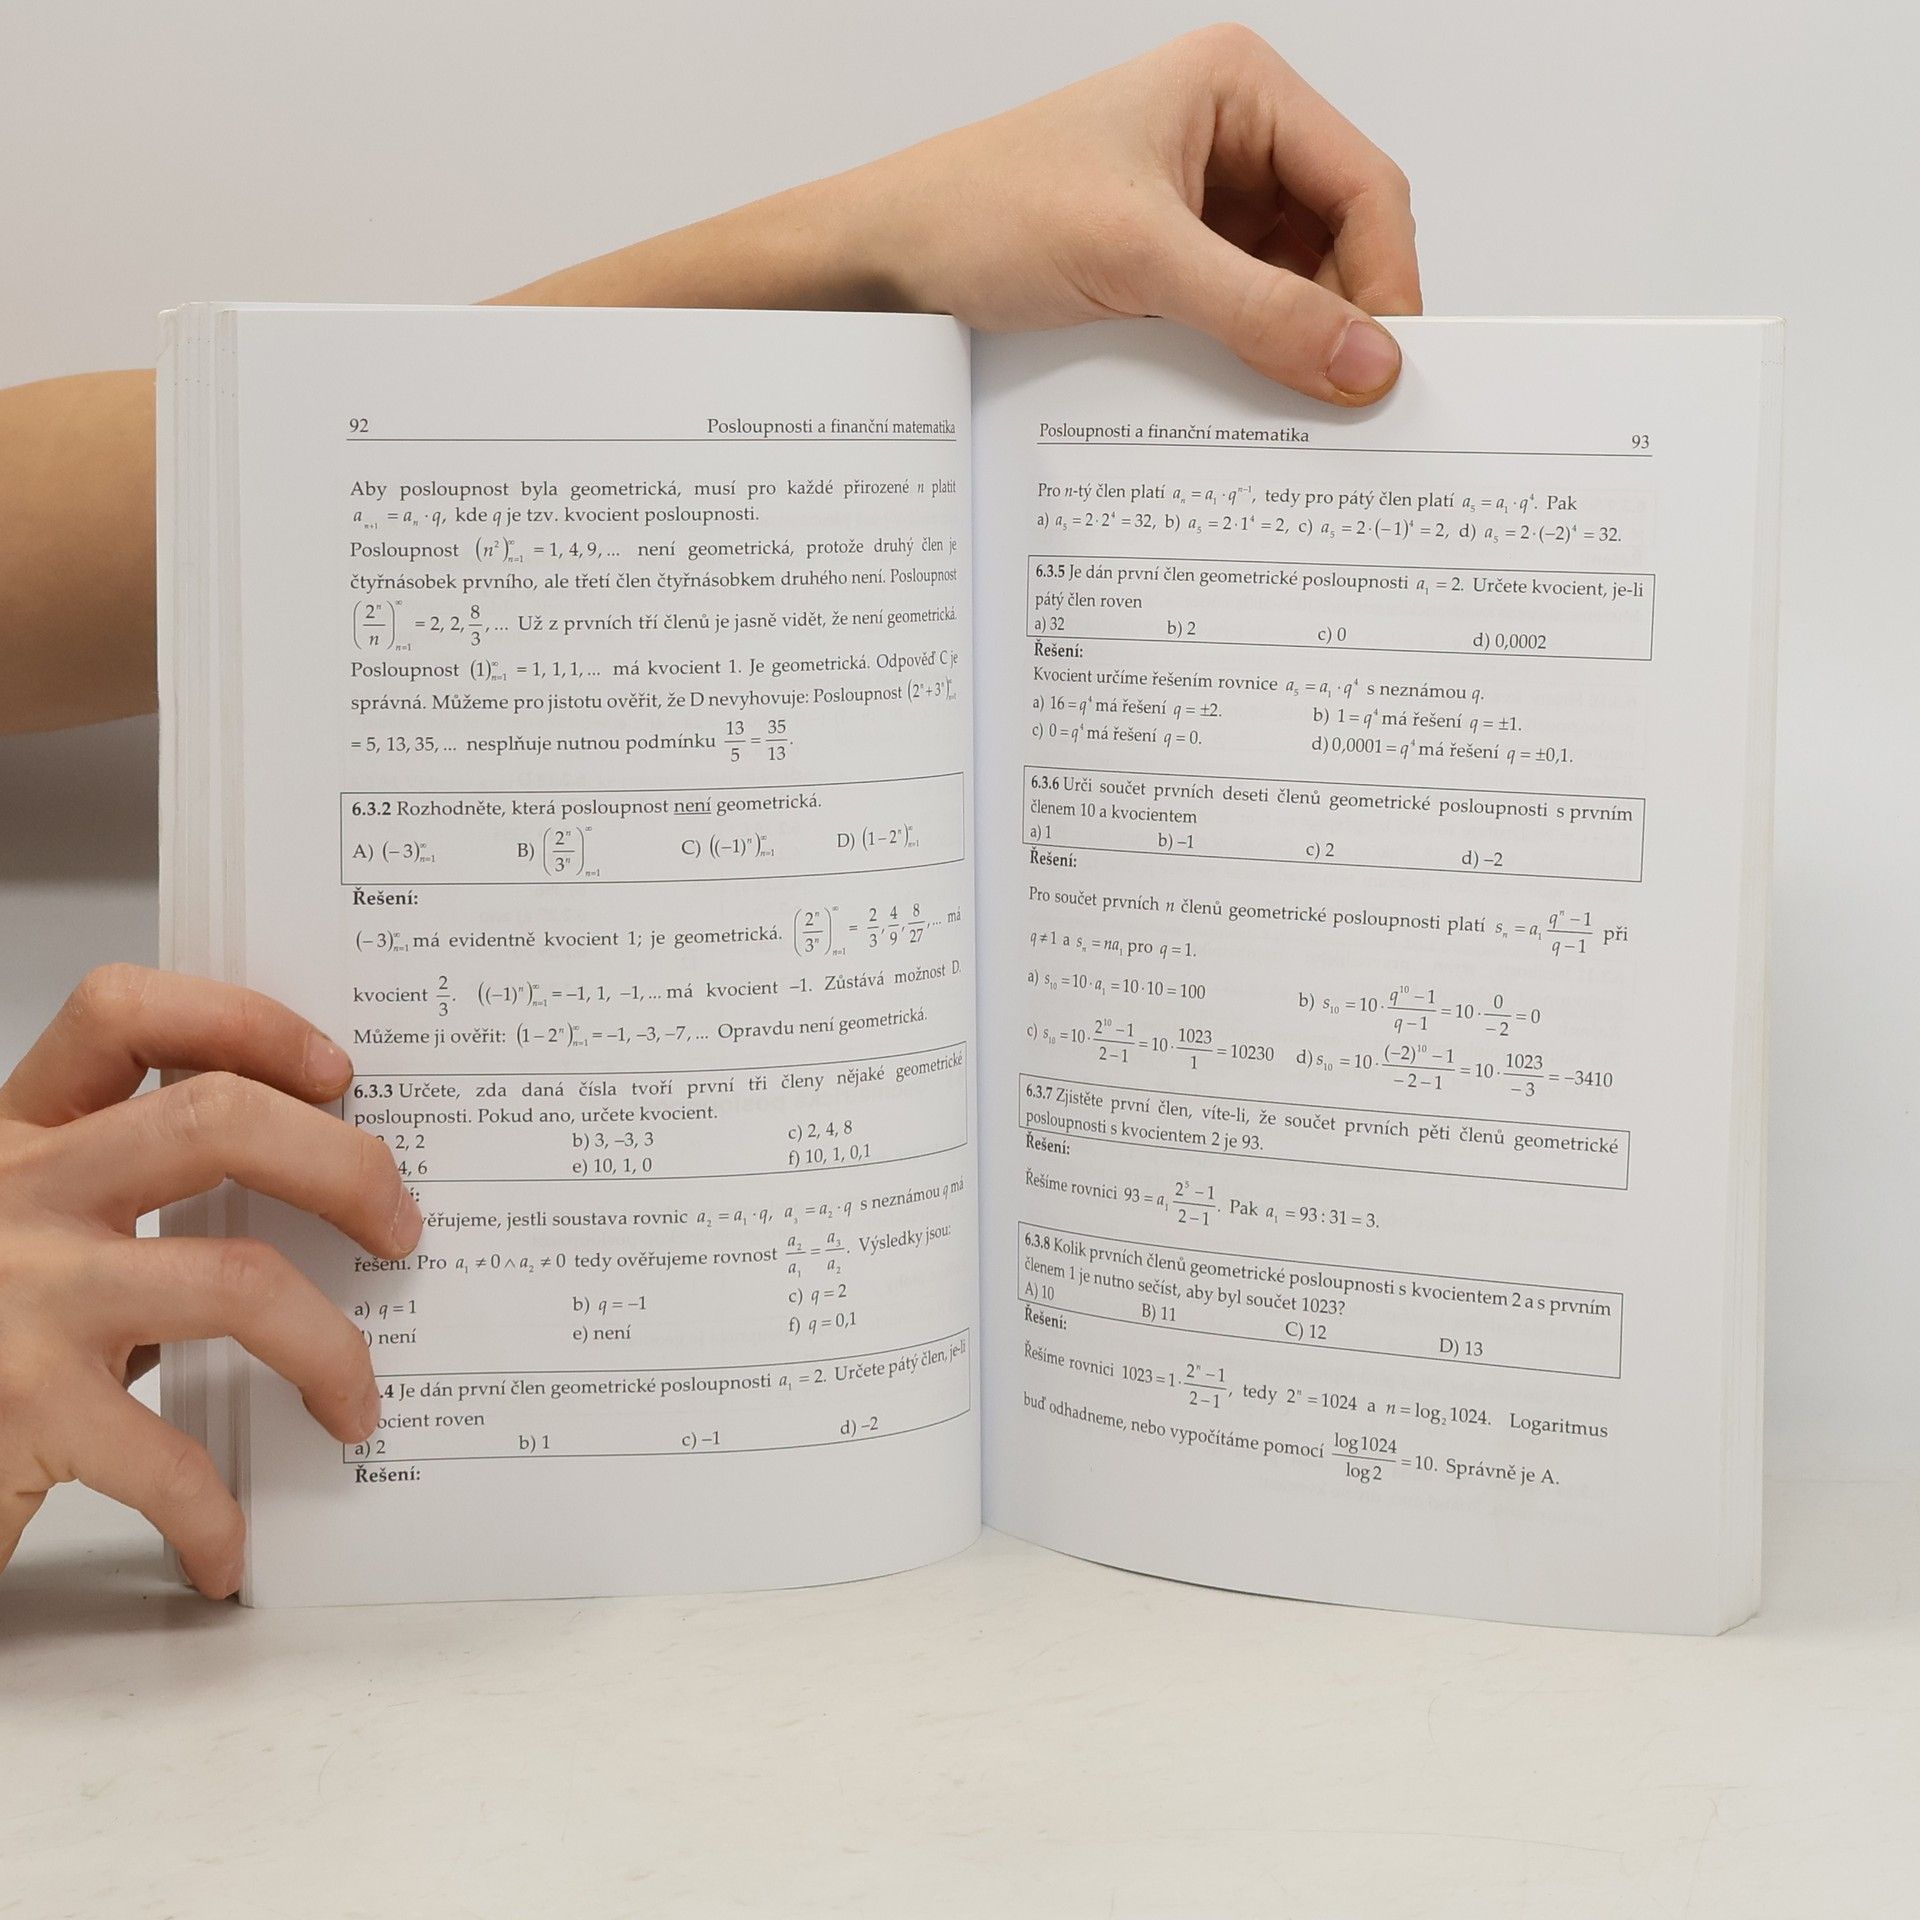 92 Posloupnosti a finanční matematika
Aby posloupnost byla geometrická, musí pro každé přirozené n platit
aₙ₊₁ = aₙ · q, kde q je tzv. kvocient posloupnosti.
Posloupnost (n²)ₙ₌₁^∞ = 1, 4, 9, ... není geometrická, protože druhý člen je
čtyřnásobek prvního, ale třetí člen čtyřnásobkem druhého není. Posloupnost
(2ⁿ/n)ₙ₌₁^∞ = 2, 2, 8/3, ... Už z prvních tří členů je jasně vidět, že není geometrická.
Posloupnost (1)ₙ₌₁^∞ = 1, 1, 1, ... má kvocient 1. Je geometrická. Odpověď C je
správná. Můžeme pro jistotu ověřit, že D nevyhovuje: Posloupnost (2ⁿ+3ⁿ)ₙ₌₁^∞
= 5, 13, 35, ... nesplňuje nutnou podmínku 13/5 = 35/13.
6.3.2 Rozhodněte, která posloupnost není geometrická.
A) (−3)ₙ₌₁^∞ B) (2ⁿ/3ⁿ)ₙ₌₁^∞ C) ((−1)ⁿ)ₙ₌₁^∞ D) (1−2ⁿ)ₙ₌₁^∞
Řešení:
(−3)ₙ₌₁^∞ má evidentně kvocient 1; je geometrická. (2ⁿ/3ⁿ)ₙ₌₁^∞ = 2/3, 4/9, 8/27, ... má
kvocient 2/3. ((−1)ⁿ)ₙ₌₁^∞ = −1, 1, −1, ... má kvocient −1. Zůstává možnost D.
Můžeme ji ověřit: (1−2ⁿ)ₙ₌₁^∞ = −1, −3, −7, ... Opravdu není geometrická.
6.3.3 Určete, zda daná čísla tvoří první tři členy nějaké geometrické
posloupnosti. Pokud ano, určete kvocient.
2, 2 b) 3, −3, 3 c) 2, 4, 8
4, 6 e) 10, 1, 0 f) 10, 1, 0,1
jestli soustava rovnic a₂ = a₁ · q, a₃ = a₂ · q s neznámou q má
řešení. Pro a₁ ≠ 0 ∧ a₂ ≠ 0 tedy ověřujeme rovnost a₂/a₁ = a₃/a₂. Výsledky jsou:
a) q = 1 b) q = −1 c) q = 2
) není e) není f) q = 0,1
.4 Je dán první člen geometrické posloupnosti a₁ = 2. Určete pátý člen, je-li
ocient roven
a) 2 b) 1 c) −1 d) −2
Řešení:
Posloupnosti a finanční matematika 93
Pro n-tý člen platí aₙ = a₁ · qⁿ⁻¹, tedy pro pátý člen platí a₅ = a₁ · q⁴. Pak
a) a₅ = 2·2⁴ = 32, b) a₅ = 2·1⁴ = 2, c) a₅ = 2·(−1)⁴ = 2, d) a₅ = 2·(−2)⁴ = 32.
6.3.5 Je dán první člen geometrické posloupnosti a₁ = 2. Určete kvocient, je-li
pátý člen roven
a) 32 b) 2 c) 0 d) 0,0002
Řešení:
Kvocient určíme řešením rovnice a₅ = a₁ · q⁴ s neznámou q.
a) 16 = q⁴ má řešení q = ±2. b) 1 = q⁴ má řešení q = ±1.
c) 0 = q⁴ má řešení q = 0. d) 0,0001 = q⁴ má řešení q = ±0,1.
6.3.6 Urči součet prvních deseti členů geometrické posloupnosti s prvním
členem 10 a kvocientem
a) 1 b) −1 c) 2 d) −2
Řešení:
Pro součet prvních n členů geometrické posloupnosti platí sₙ = a₁ (qⁿ−1)/(q−1) při
q ≠ 1 a sₙ = na₁ pro q = 1.
a) s₁₀ = 10·a₁ = 10·10 = 100 b) s₁₀ = 10·(q¹⁰−1)/(q−1) = 10·0/−2 = 0
c) s₁₀ = 10·(2¹⁰−1)/(2−1) = 10·1023/1 = 10230 d) s₁₀ = 10·((−2)¹⁰−1)/(−2−1) = 10·1023/−3 = −3410
6.3.7 Zjistěte první člen, víte-li, že součet prvních pěti členů geometrické
posloupnosti s kvocientem 2 je 93.
Řešení:
Řešíme rovnici 93 = a₁ (2⁵−1)/(2−1). Pak a₁ = 93 : 31 = 3.
6.3.8 Kolik prvních členů geometrické posloupnosti s kvocientem 2 a s prvním
členem 1 je nutno sečíst, aby byl součet 1023?
A) 10 B) 11 C) 12 D) 13
Řešení:
Řešíme rovnici 1023 = 1·(2ⁿ−1)/(2−1), tedy 2ⁿ = 1024 a n = log₂ 1024. Logaritmus
buď odhadneme, nebo vypočítáme pomocí log 1024/log 2 = 10. Správně je A.